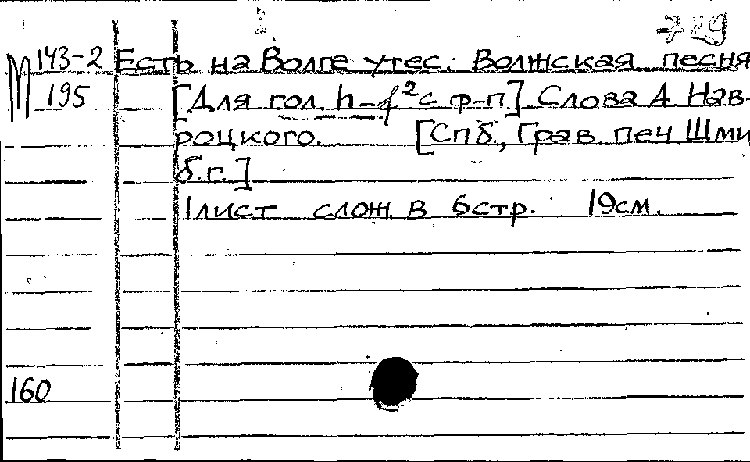 729
М 143-2 Есть на Волге утес. Волжская песня
195 [Для гол. h-f² с ф-п] Слова А Нав-
роцкого. [Спб., Грав. печ Шми
б.г.]
1 лист слож в 6 стр. 19 см.
160